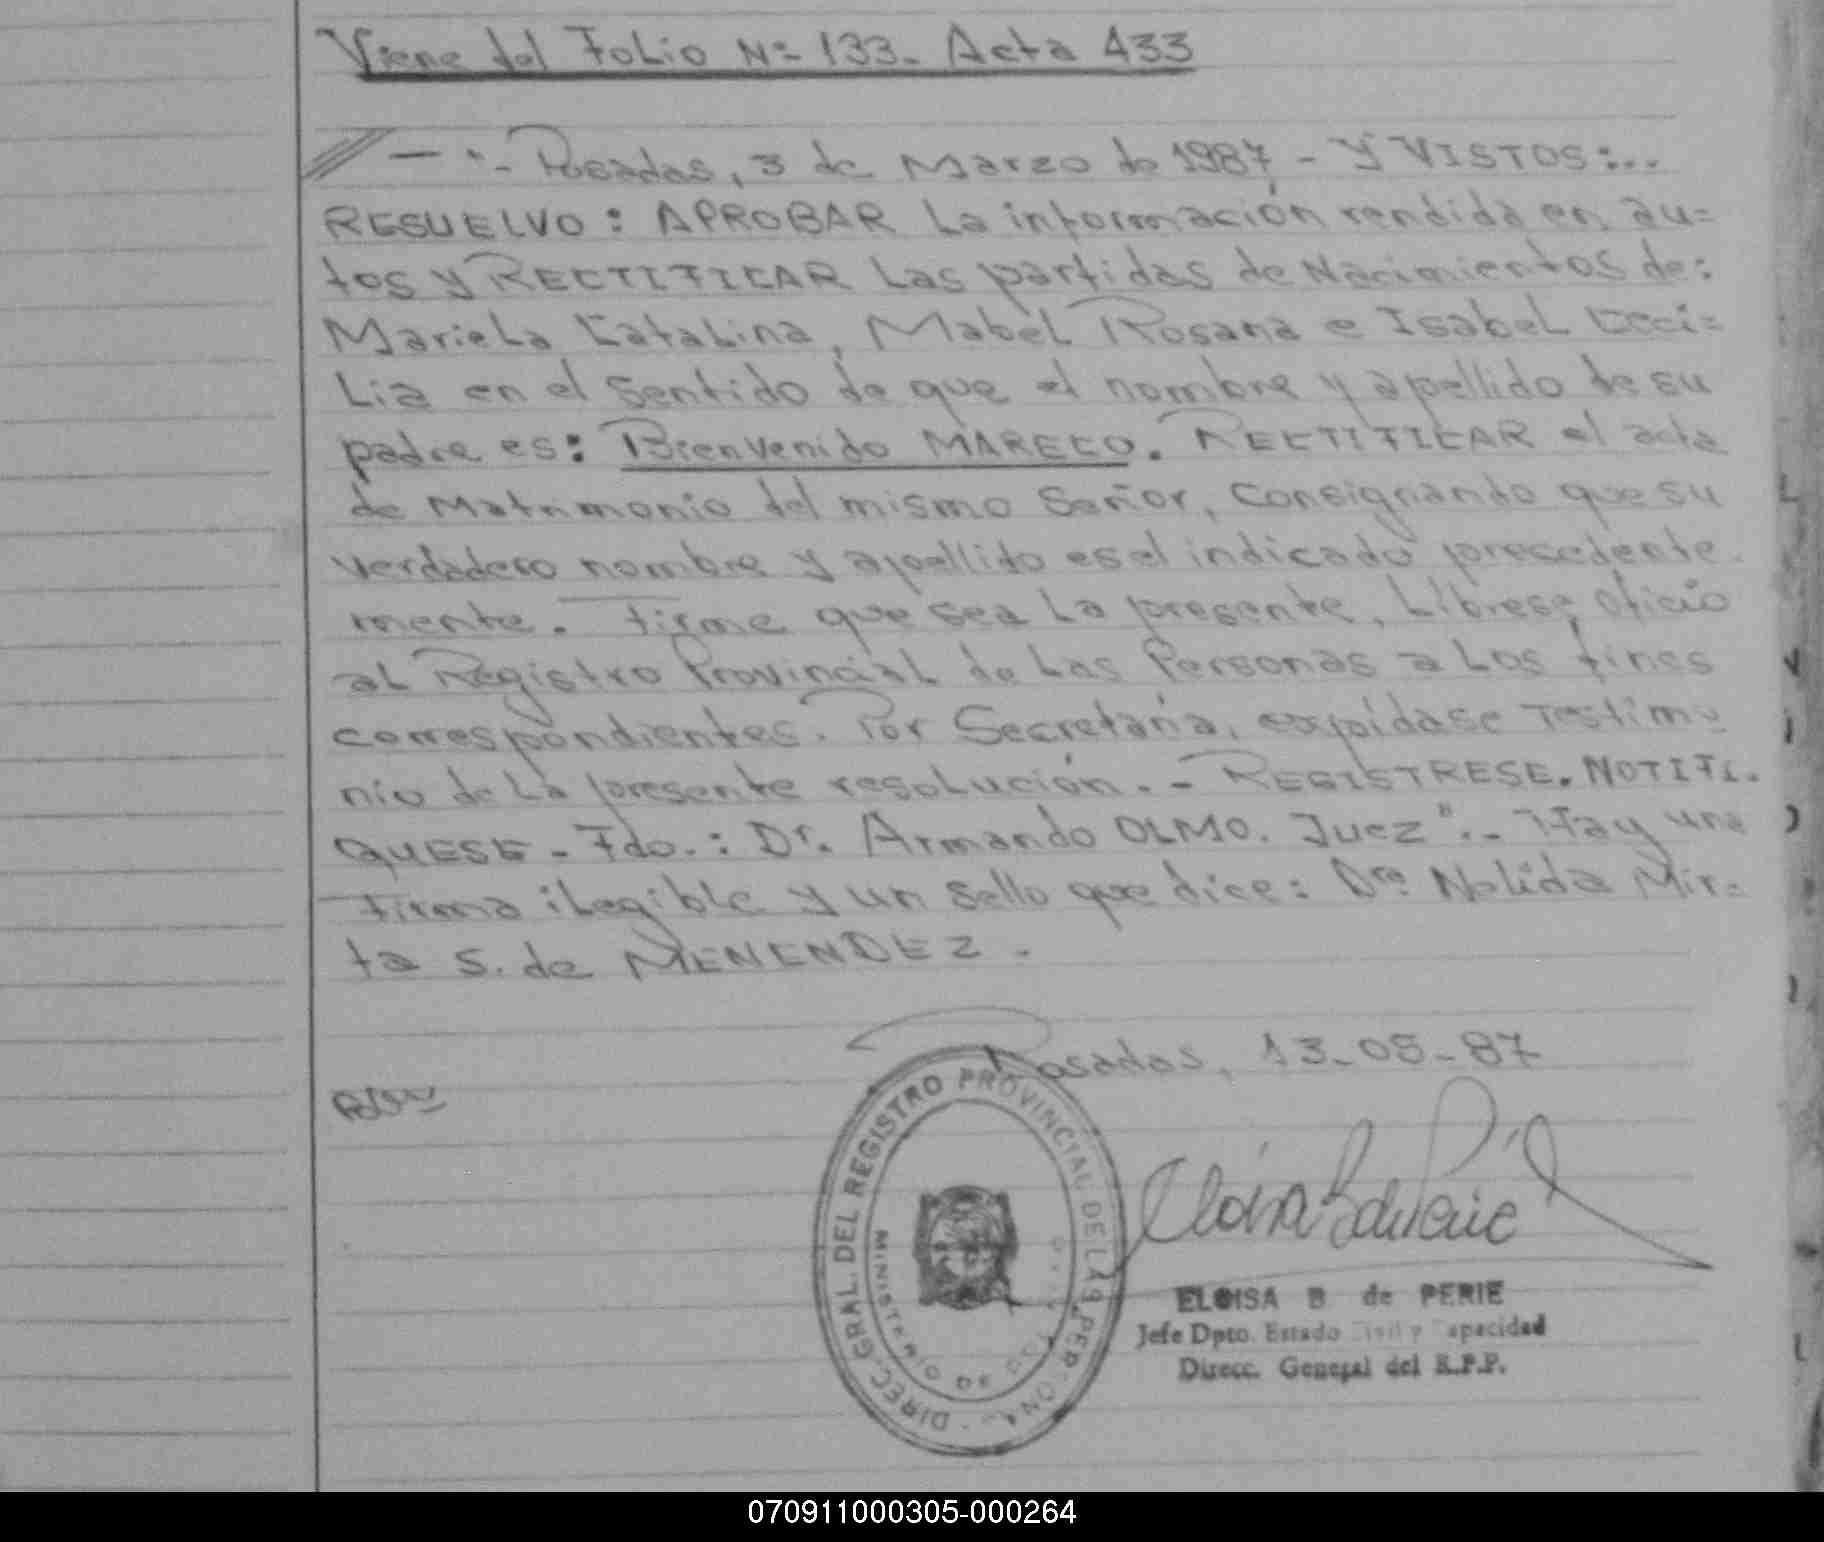 Viene del Folio Nº 133- Acta 433
— "- Posadas, 3 de Marzo de 1987 - Y VISTOS:...
RESUELVO: APROBAR La información rendida en au=
tos y RECTIFICAR Las partidas de Nacimientos de:
Mariela Catalina, Mabel Rosana e Isabel Ceci=
Lia en el sentido de que el nombre y apellido de su
padre es: Bienvenido MARECO. RECTIFICAR el acta
de Matrimonio del mismo Señor, Consignando que su
verdadero nombre y apellido es el indicado precedente-
mente. Firme que sea La presente, Líbrese oficio
al Registro Provincial de Las Personas a Los fines
correspondientes. Por Secretaría, expídase Testimo
nio de La presente resolución.- REGISTRESE. NOTIFI-
QUESE- Fdo.: Dr. Armando OLMO. Juez".- Hay una
firma ilegible y un sello que dice: Dra Nelida Mir=
ta S. de MENENDEZ.
Posadas, 13-05-87
DIREC. GRAL. DEL REGISTRO PROVINCIAL DE LAS PERSONAS
MINISTERIO DE
ELOISA B de PERIE
Jefe Dpto. Estado Civil y Capacidad
Direcc. General del R.P.P.
070911000305-000264